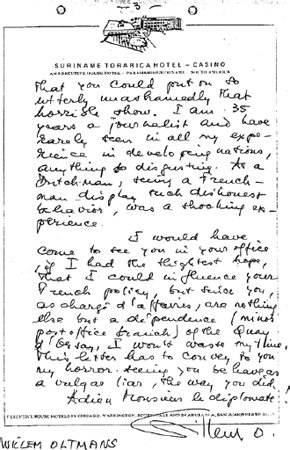 - 3 -
SURINAME TORARICA HOTEL - CASINO
AN EXECUTIVE HOUSE HOTEL - PARAMARIBO SURINAME SOUTH AMERICA
that you could put on so
utterly unashamedly that
horrible show. I am 35
years a journalist and have
rarely seen in all my expe-
rience in developing nations,
anything so disgusting. As a
Dutchman, seeing a French-
man display such dishonest
behavior, was a shocking ex-
perience.
I would have
come to see you in your office
if I had the slightest hope,
that I could influence your
French policy, but since you,
as chargé d'affaires, are nothing
else but a dependence (minus
post office branch) of the Quay
d'Orsay, I won't waste my time.
This letter has to convey to you
my horror seeing you behave as
a vulgar liar, the way you did.
Adieu Monsieur le diplomate!
EXECUTIVE HOUSE HOTELS IN CHICAGO, WASHINGTON, SCOTTSDALE AND
Willem O.
WILLEM OLTMANS